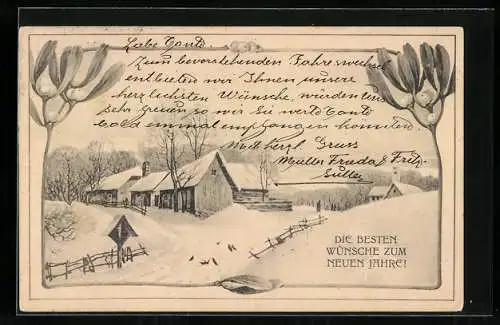 Liebe Tante
Zum bevorstehenden Jahreswechsel
entbieten wir Ihnen unsere
herzlichsten Wünsche, würden uns
sehr freuen so wir Sie werte Tante
bald einmal empfangen könnten.
Mit herzl. Gruss
Müller Frieda & Fritz
DIE BESTEN
WÜNSCHE ZUM
NEUEN JAHRE!